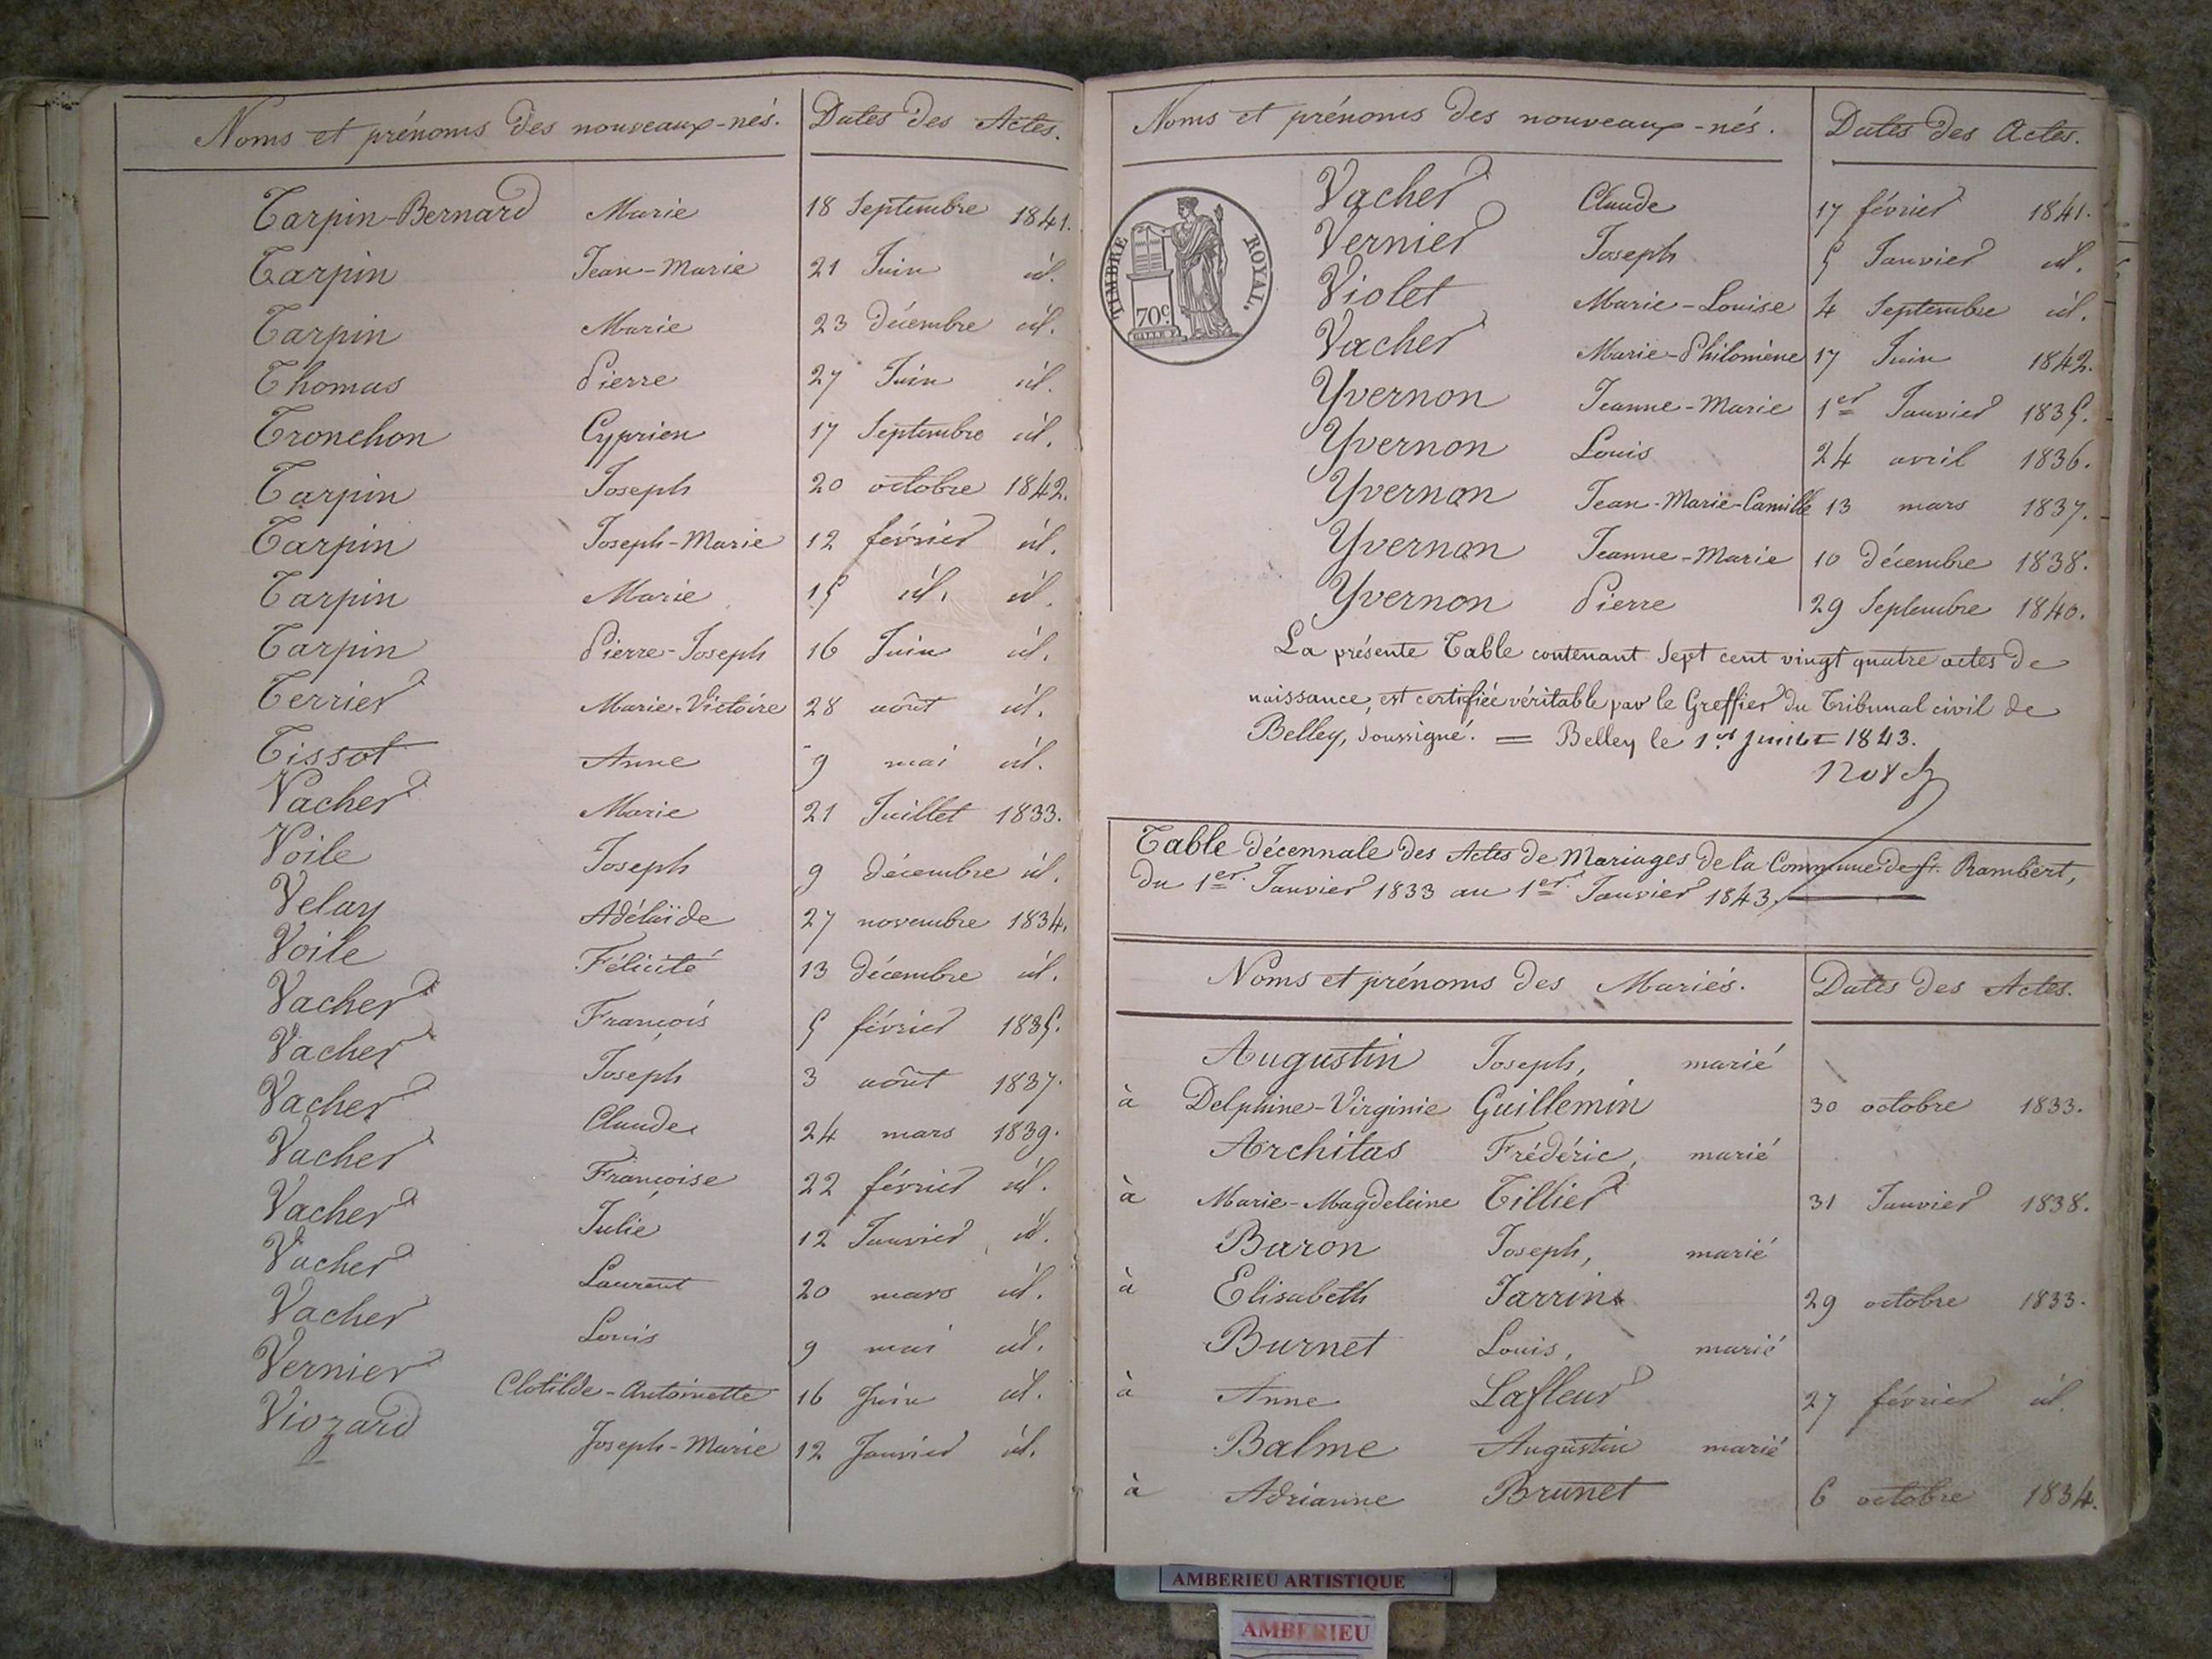 Noms et prénoms des nouveaux-nés. Dates des Actes.
Tarpin-Bernard Marie 18 Septembre 1841.
Tarpin Jean-Marie 21 Juin id.
Tarpin Marie 23 décembre id.
Thomas Pierre 27 Juin id.
Tronchon Cyprien 17 Septembre id.
Tarpin Joseph 20 octobre 1842.
Tarpin Joseph-Marie 12 février id.
Tarpin Marie 15 id. id.
Tarpin Pierre-Joseph 16 Juin id.
Terrier Marie-Victoire 28 août id.
Tissot Anne 9 mai id.
Vacher Marie 21 Juillet 1833.
Voile Joseph 9 décembre id.
Velay Adélaïde 27 novembre 1834.
Voile Félicité 13 décembre id.
Vacher François 5 février 1835.
Vacher Joseph 3 août 1837.
Vacher Claude 24 mars 1839.
Vacher Françoise 22 février id.
Vacher Julie 12 Janvier id.
Vacher Laurent 20 mars id.
Vacher Louis 9 mai id.
Vernier Clotilde-Antoinette 16 Juin id.
Viozard Joseph-Marie 12 Janvier id.
Noms et prénoms des nouveaux-nés. Dates des Actes.
TIMBRE ROYAL.
70c.
Vacher Claude 17 février 1841.
Vernier Joseph 5 Janvier id.
Violet Marie-Louise 4 Septembre id.
Vacher Marie-Philomène 17 Juin 1842.
Yvernon Jeanne-Marie 1er Janvier 1835.
Yvernon Louis 24 avril 1836.
Yvernon Jean-Marie-Camille 13 mars 1837.
Yvernon Jeanne-Marie 10 décembre 1838.
Yvernon Pierre 29 Septembre 1840.
La présente Table contenant Sept cent vingt quatre actes de
naissance, est certifiée véritable par le Greffier du Tribunal civil de
Belley, Soussigné. = Belley le 1er Juillet 1843.
Table décennale des Actes de Mariages de la Commune de St. Rambert,
du 1er Janvier 1833 au 1er Janvier 1843.
Noms et prénoms des Mariés. Dates des Actes.
Augustin Joseph, marié
à Delphine-Virginie Guillemin 30 octobre 1833.
Architas Frédéric, marié
à Marie-Magdeleine Tillier 31 Janvier 1838.
Baron Joseph, marié
à Elisabeth Jarrin 29 octobre 1833.
Burnet Louis, marié
à Anne Lafleur 27 février id.
Balme Augustin marié
à Adrianne Brunet 6 octobre 1834.
AMBERIEU ARTISTIQUE
AMBERIEU